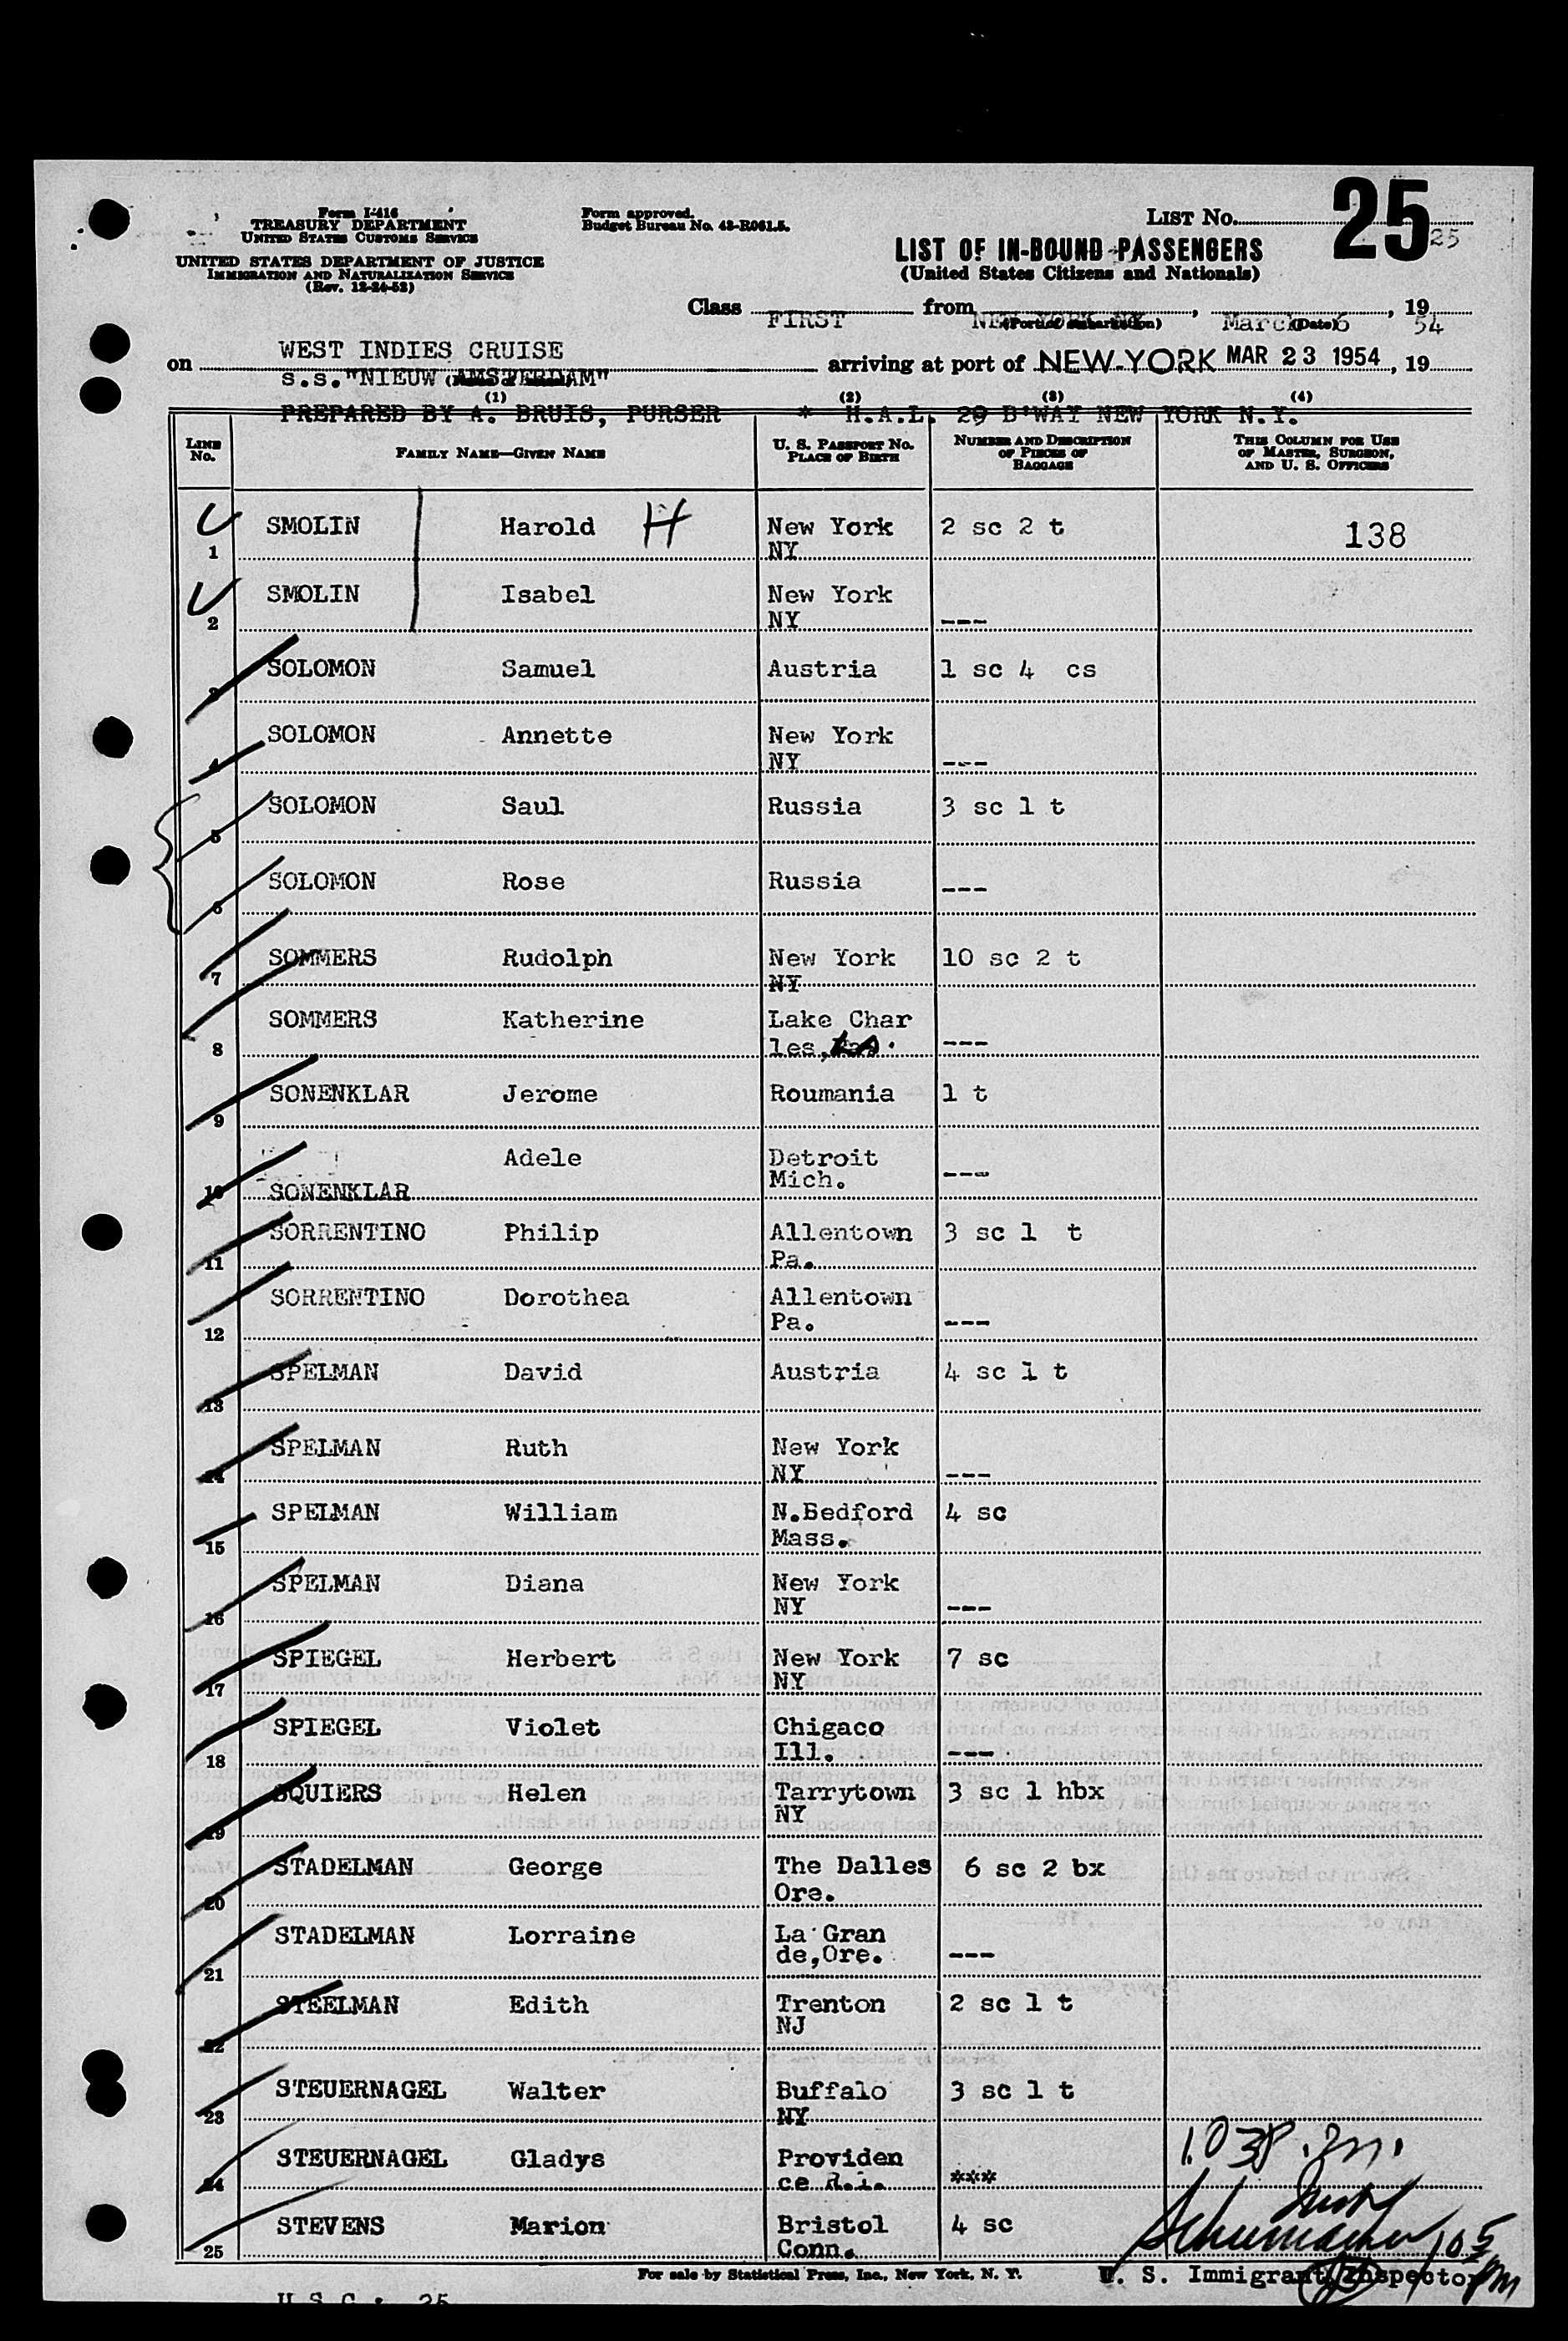 Form I-416
TREASURY DEPARTMENT
UNITED STATES CUSTOMS SERVICE
UNITED STATES DEPARTMENT OF JUSTICE
IMMIGRATION AND NATURALIZATION SERVICE
(Rev. 12-24-52)
Form approved.
Budget Bureau No. 43-R061.5.
LIST No. 25
25
LIST OF IN-BOUND PASSENGERS
(United States Citizens and Nationals)
Class FIRST from NEW YORK NY (Port of embarkation), March 6 (Date), 19 54
WEST INDIES CRUISE
on s.s."NIEUW AMSTERDAM" arriving at port of NEW-YORK MAR 23 1954, 19
(1) (2) (3) (4)
PREPARED BY A. BRUIS, PURSER * H.A.L. 29 B'WAY NEW YORK N.Y.
LINE No.
FAMILY NAME—GIVEN NAME
U. S. PASSPORT NO. PLACE OF BIRTH
NUMBER AND DESCRIPTION OF PIECES OF BAGGAGE
THIS COLUMN FOR USE OF MASTER, SURGEON, AND U. S. OFFICERS
1 SMOLIN Harold H New York NY 2 sc 2 t 138
2 SMOLIN Isabel New York NY ---
3 SOLOMON Samuel Austria 1 sc 4 cs
4 SOLOMON Annette New York NY ---
5 SOLOMON Saul Russia 3 sc 1 t
6 SOLOMON Rose Russia ---
7 SOMMERS Rudolph New York NY 10 sc 2 t
8 SOMMERS Katherine Lake Char les, ---
9 SONENKLAR Jerome Roumania 1 t
10 SONENKLAR Adele Detroit Mich. ---
11 SORRENTINO Philip Allentown Pa. 3 sc 1 t
12 SORRENTINO Dorothea Allentown Pa. ---
13 SPELMAN David Austria 4 sc 1 t
14 SPELMAN Ruth New York NY ---
15 SPELMAN William N.Bedford Mass. 4 sc
16 SPELMAN Diana New York NY ---
17 SPIEGEL Herbert New York NY 7 sc
18 SPIEGEL Violet Chigaco Ill. ---
19 SQUIERS Helen Tarrytown NY 3 sc 1 hbx
20 STADELMAN George The Dalles Ore. 6 sc 2 bx
21 STADELMAN Lorraine La Gran de,Ore. ---
22 STEELMAN Edith Trenton NJ 2 sc 1 t
23 STEUERNAGEL Walter Buffalo NY 3 sc 1 t
24 STEUERNAGEL Gladys Providen ce R.I. ***
25 STEVENS Marion Bristol Conn. 4 sc
Schumacher
For sale by Statistical Press, Inc., New York, N. Y.
U. S. Immigrant Inspector
U S C : 25